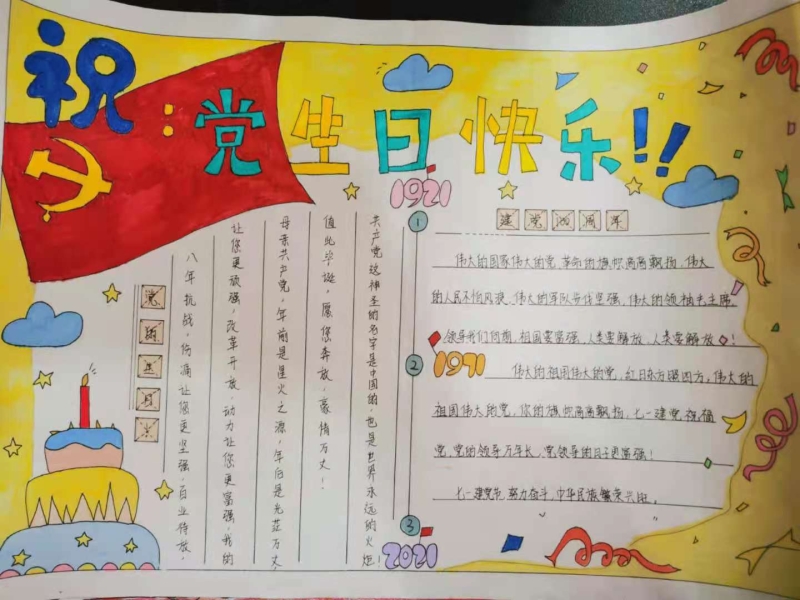 祝:党生日快乐!!
1921
1
建党周年
伟大的国家伟大的党,革命的旗帜高高飘扬,伟大
的人民不怕风浪,伟大的军队步伐坚强,伟大的领袖毛主席,
领导我们向前,祖国要坚强,人类要解放,人类要解放!
2
1971
伟大的祖国伟大的党,红日东方照四方,伟大的
祖国伟大的党,你的旗帜高高飘扬,七一建党祝福
党,党的领导万年长,党领导的日子更富强!
七一建党节,努力奋斗,中华民族繁荣兴旺。
3
2021
共产党这神圣的名字是中国的,也是世界永远的火炬!
值此华诞,愿您奔放,豪情万丈!
母亲共产党,年前是星火之源 年后是光茫万丈,
让您更顽强,改革开放,动力让您更富强,我的
八年抗战,伤痛让您更坚强,百业待放,
党